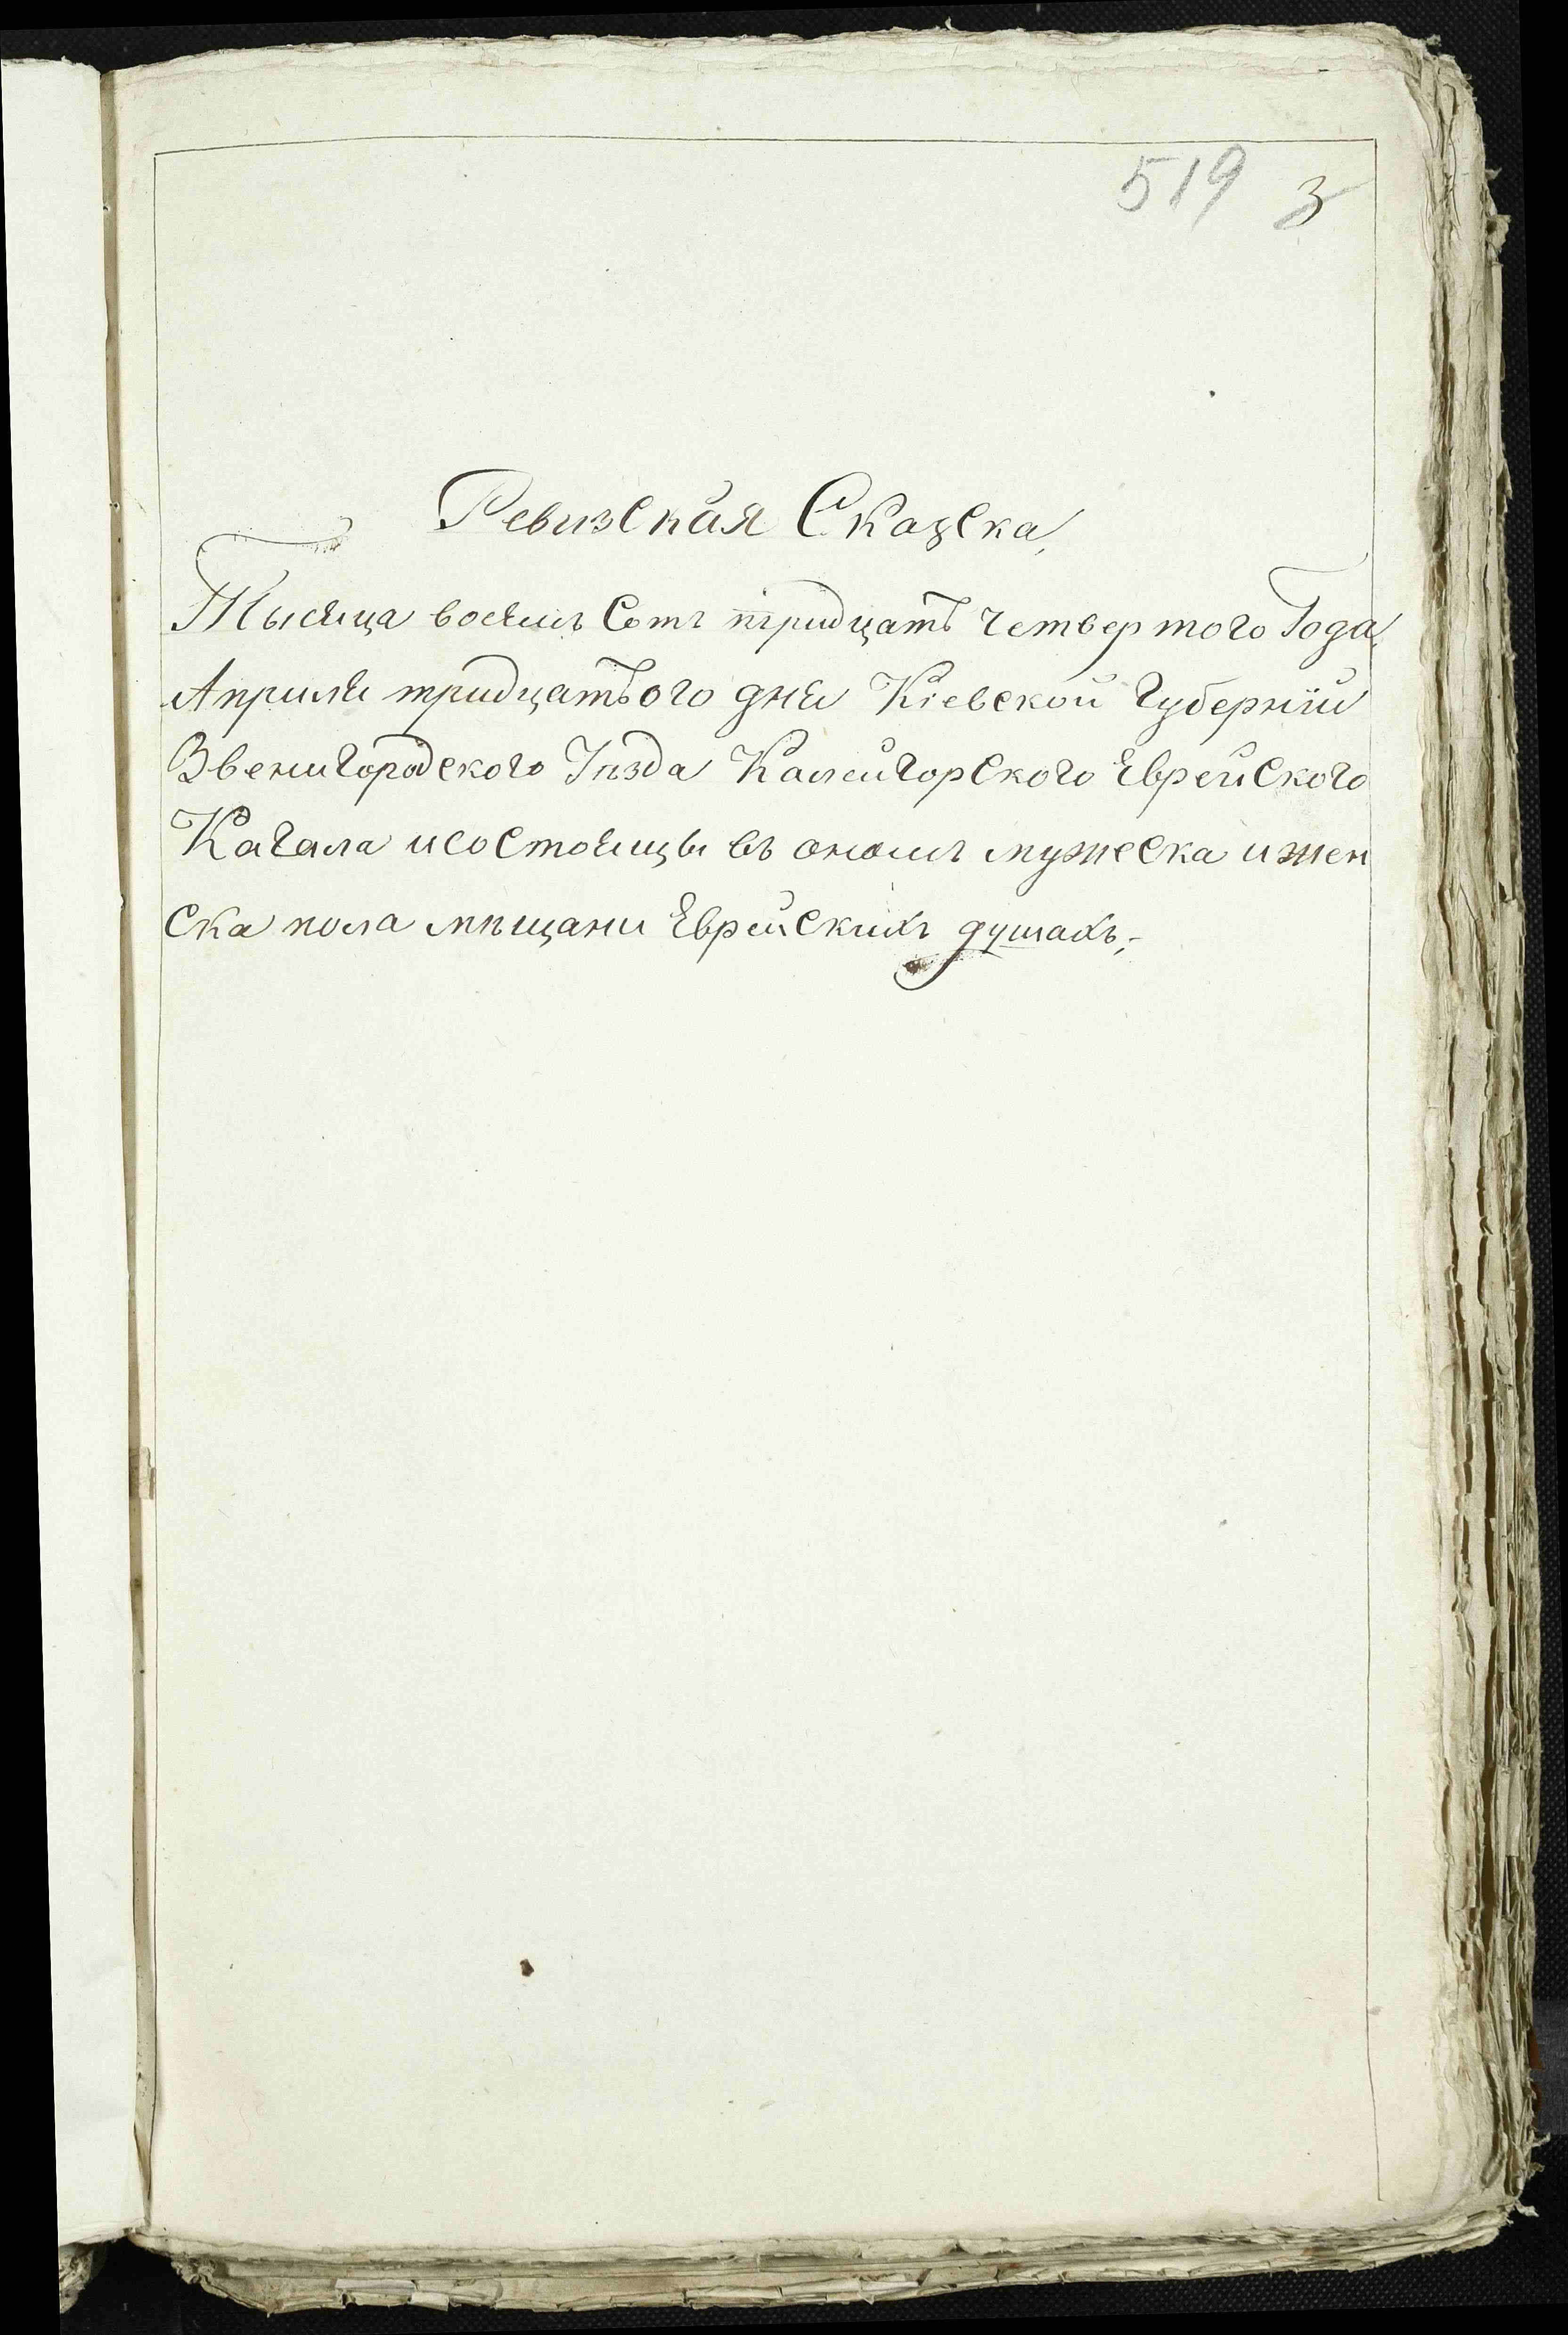 519 3
Ревизская Сказска
Тысяца восемъ Сотъ тридцать четвертого Года
Априля тридцатього дня Кіевской Губерніи
Звенигородского Уѣзда Калнигорского Еврейского
Кагала исостоящы въ ономъ мужеска ижен
ска пола мѣщани Еврейскихъ душахъ;-